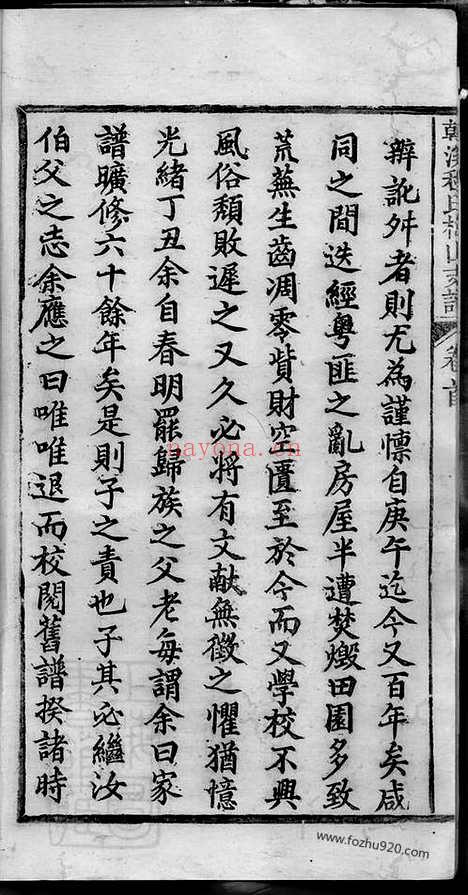 辯訛舛者則尤為謹懍自庚午迄今又百年矣咸
同之間迭經粵匪之亂房屋半遭焚燬田園多致
荒蕪生齒凋零貲財空匱至於今而又學校不興
風俗頹敗遲之又久必將有文献無徵之懼猶憶
光緒丁丑余自春明罷歸族之父老每謂余曰家
譜曠修六十餘年矣是則子之責也子其必繼汝
伯父之志余應之曰唯唯退而校閱舊譜揆諸時
卷首
nayona.cn
www.fozhu920.com